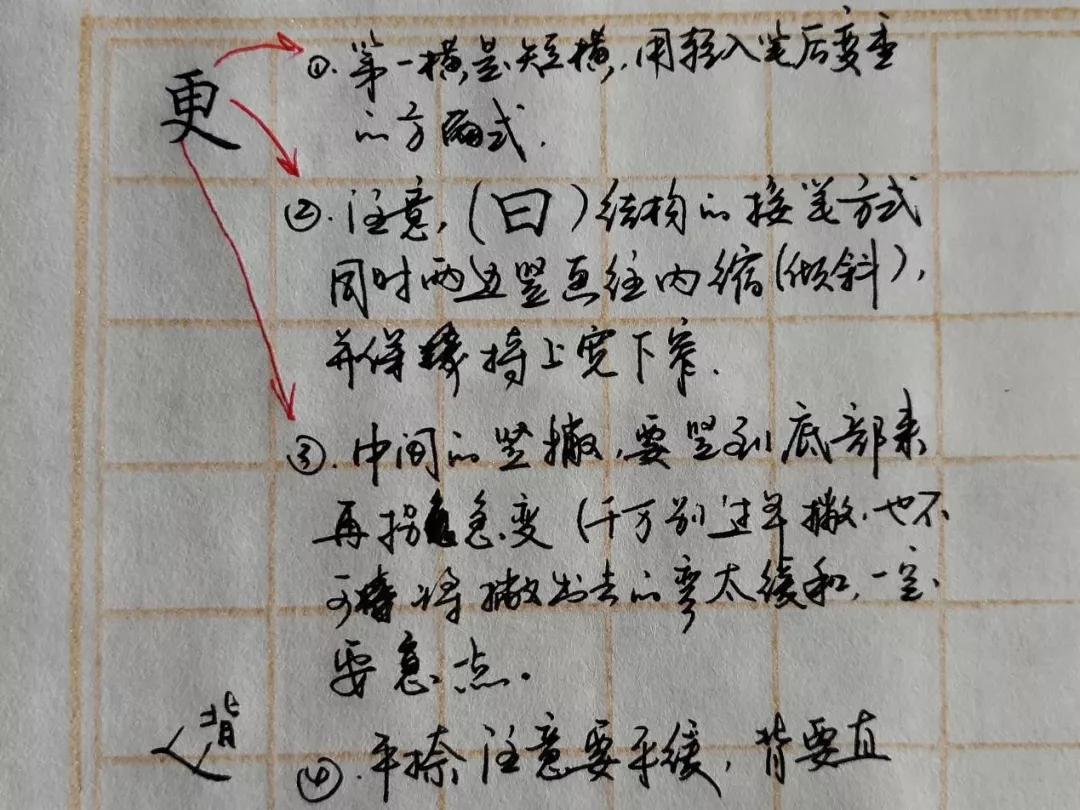 更
①.第一横是短横,用轻入笔后变重
的方式.
②.注意,(曰)结构的接笔方式
同时两边竖画往内缩(倾斜),
并保持上宽下窄.
③.中间的竖撇,要竖到底部来
再拐急变(千万别过早撇.也不
可将撇出去的弯太缓和,一定
要急一点.
背
④.平捺注意要平缓,背要直